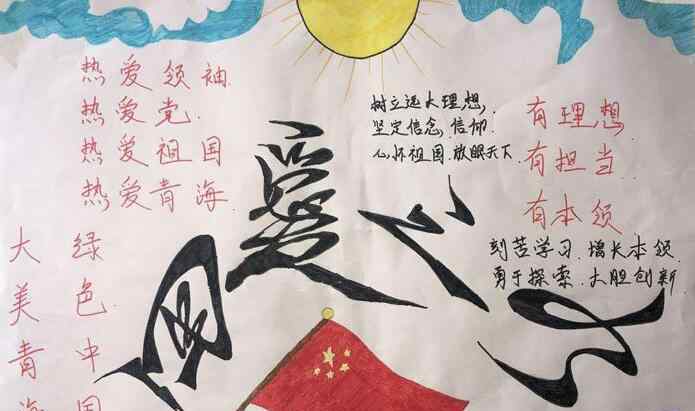 热爱领袖
热爱党.
热爱祖国
热爱青海.
大美青海
绿色中国
树立远大理想,
坚定信念.信仰.
心怀祖国.放眼天下
有理想
有担当
有本领
刻苦学习.增长本领.
勇于探索.大胆创新.